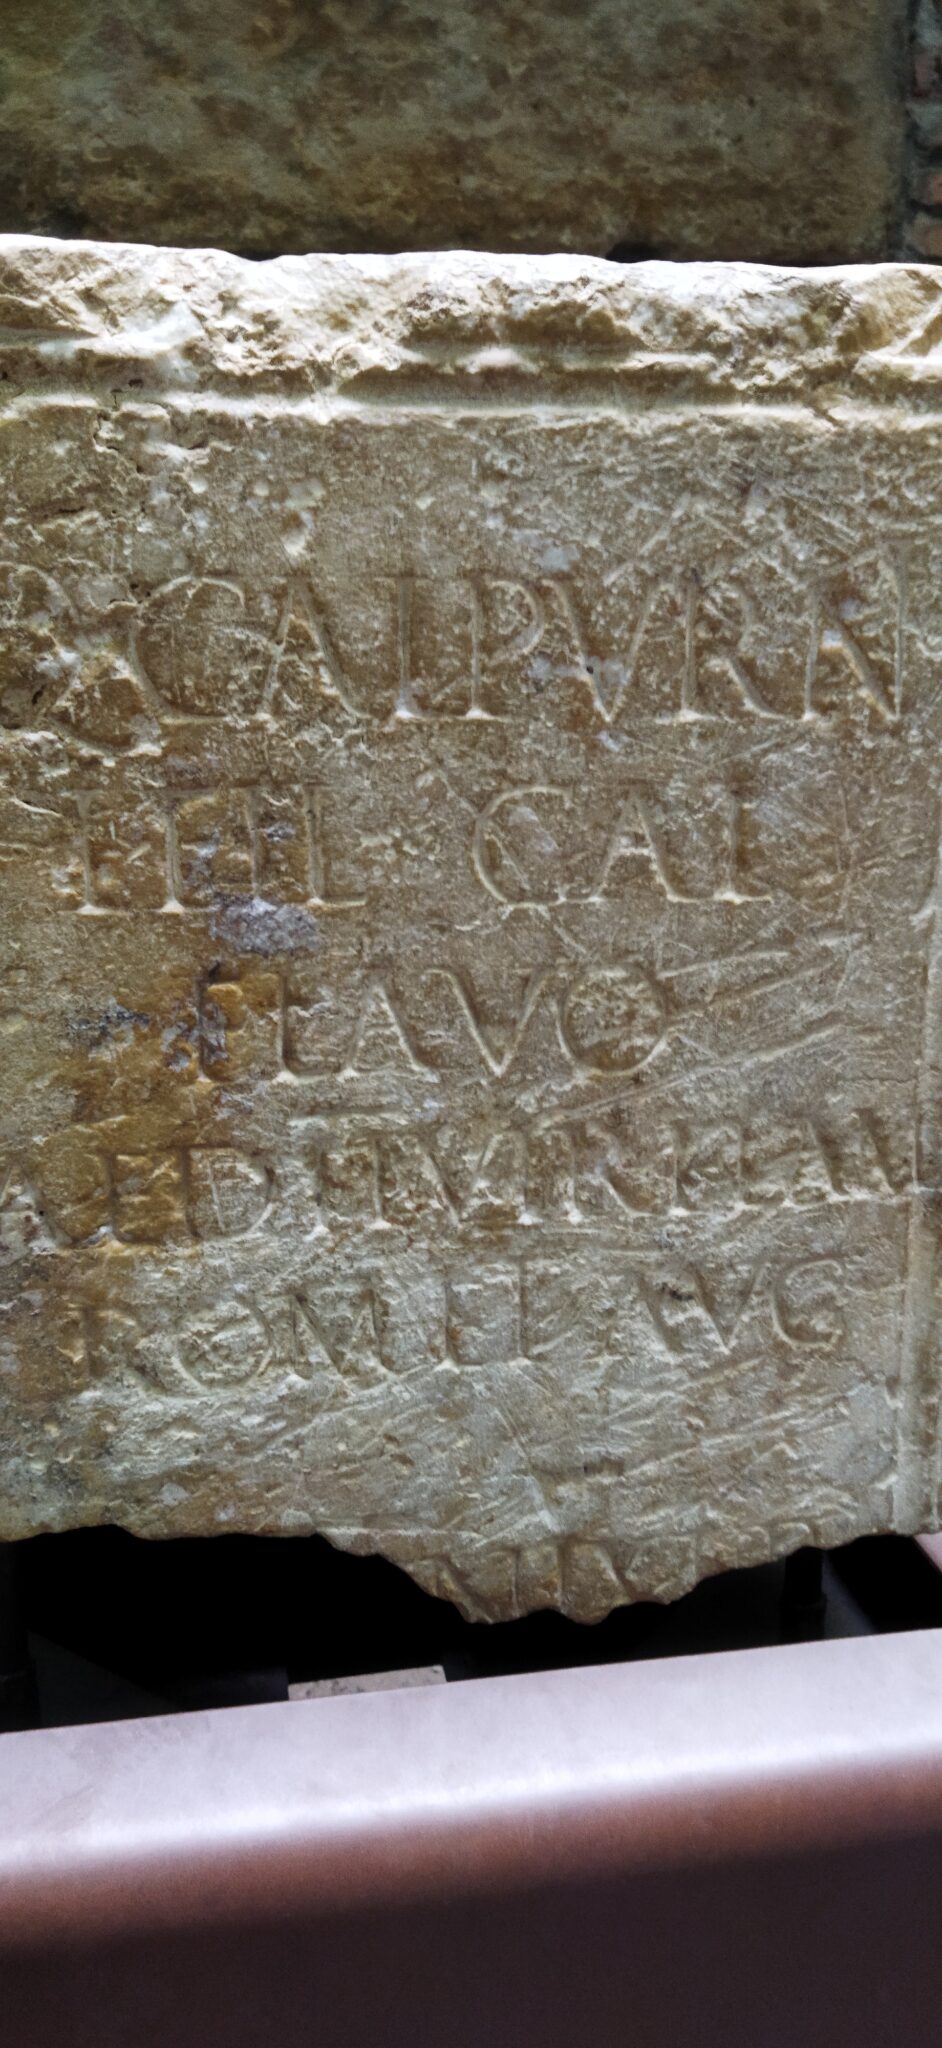 Q CALPVRN
FIL GAL
FLAVO
AED II VIR FLAM
ROM ET AVG